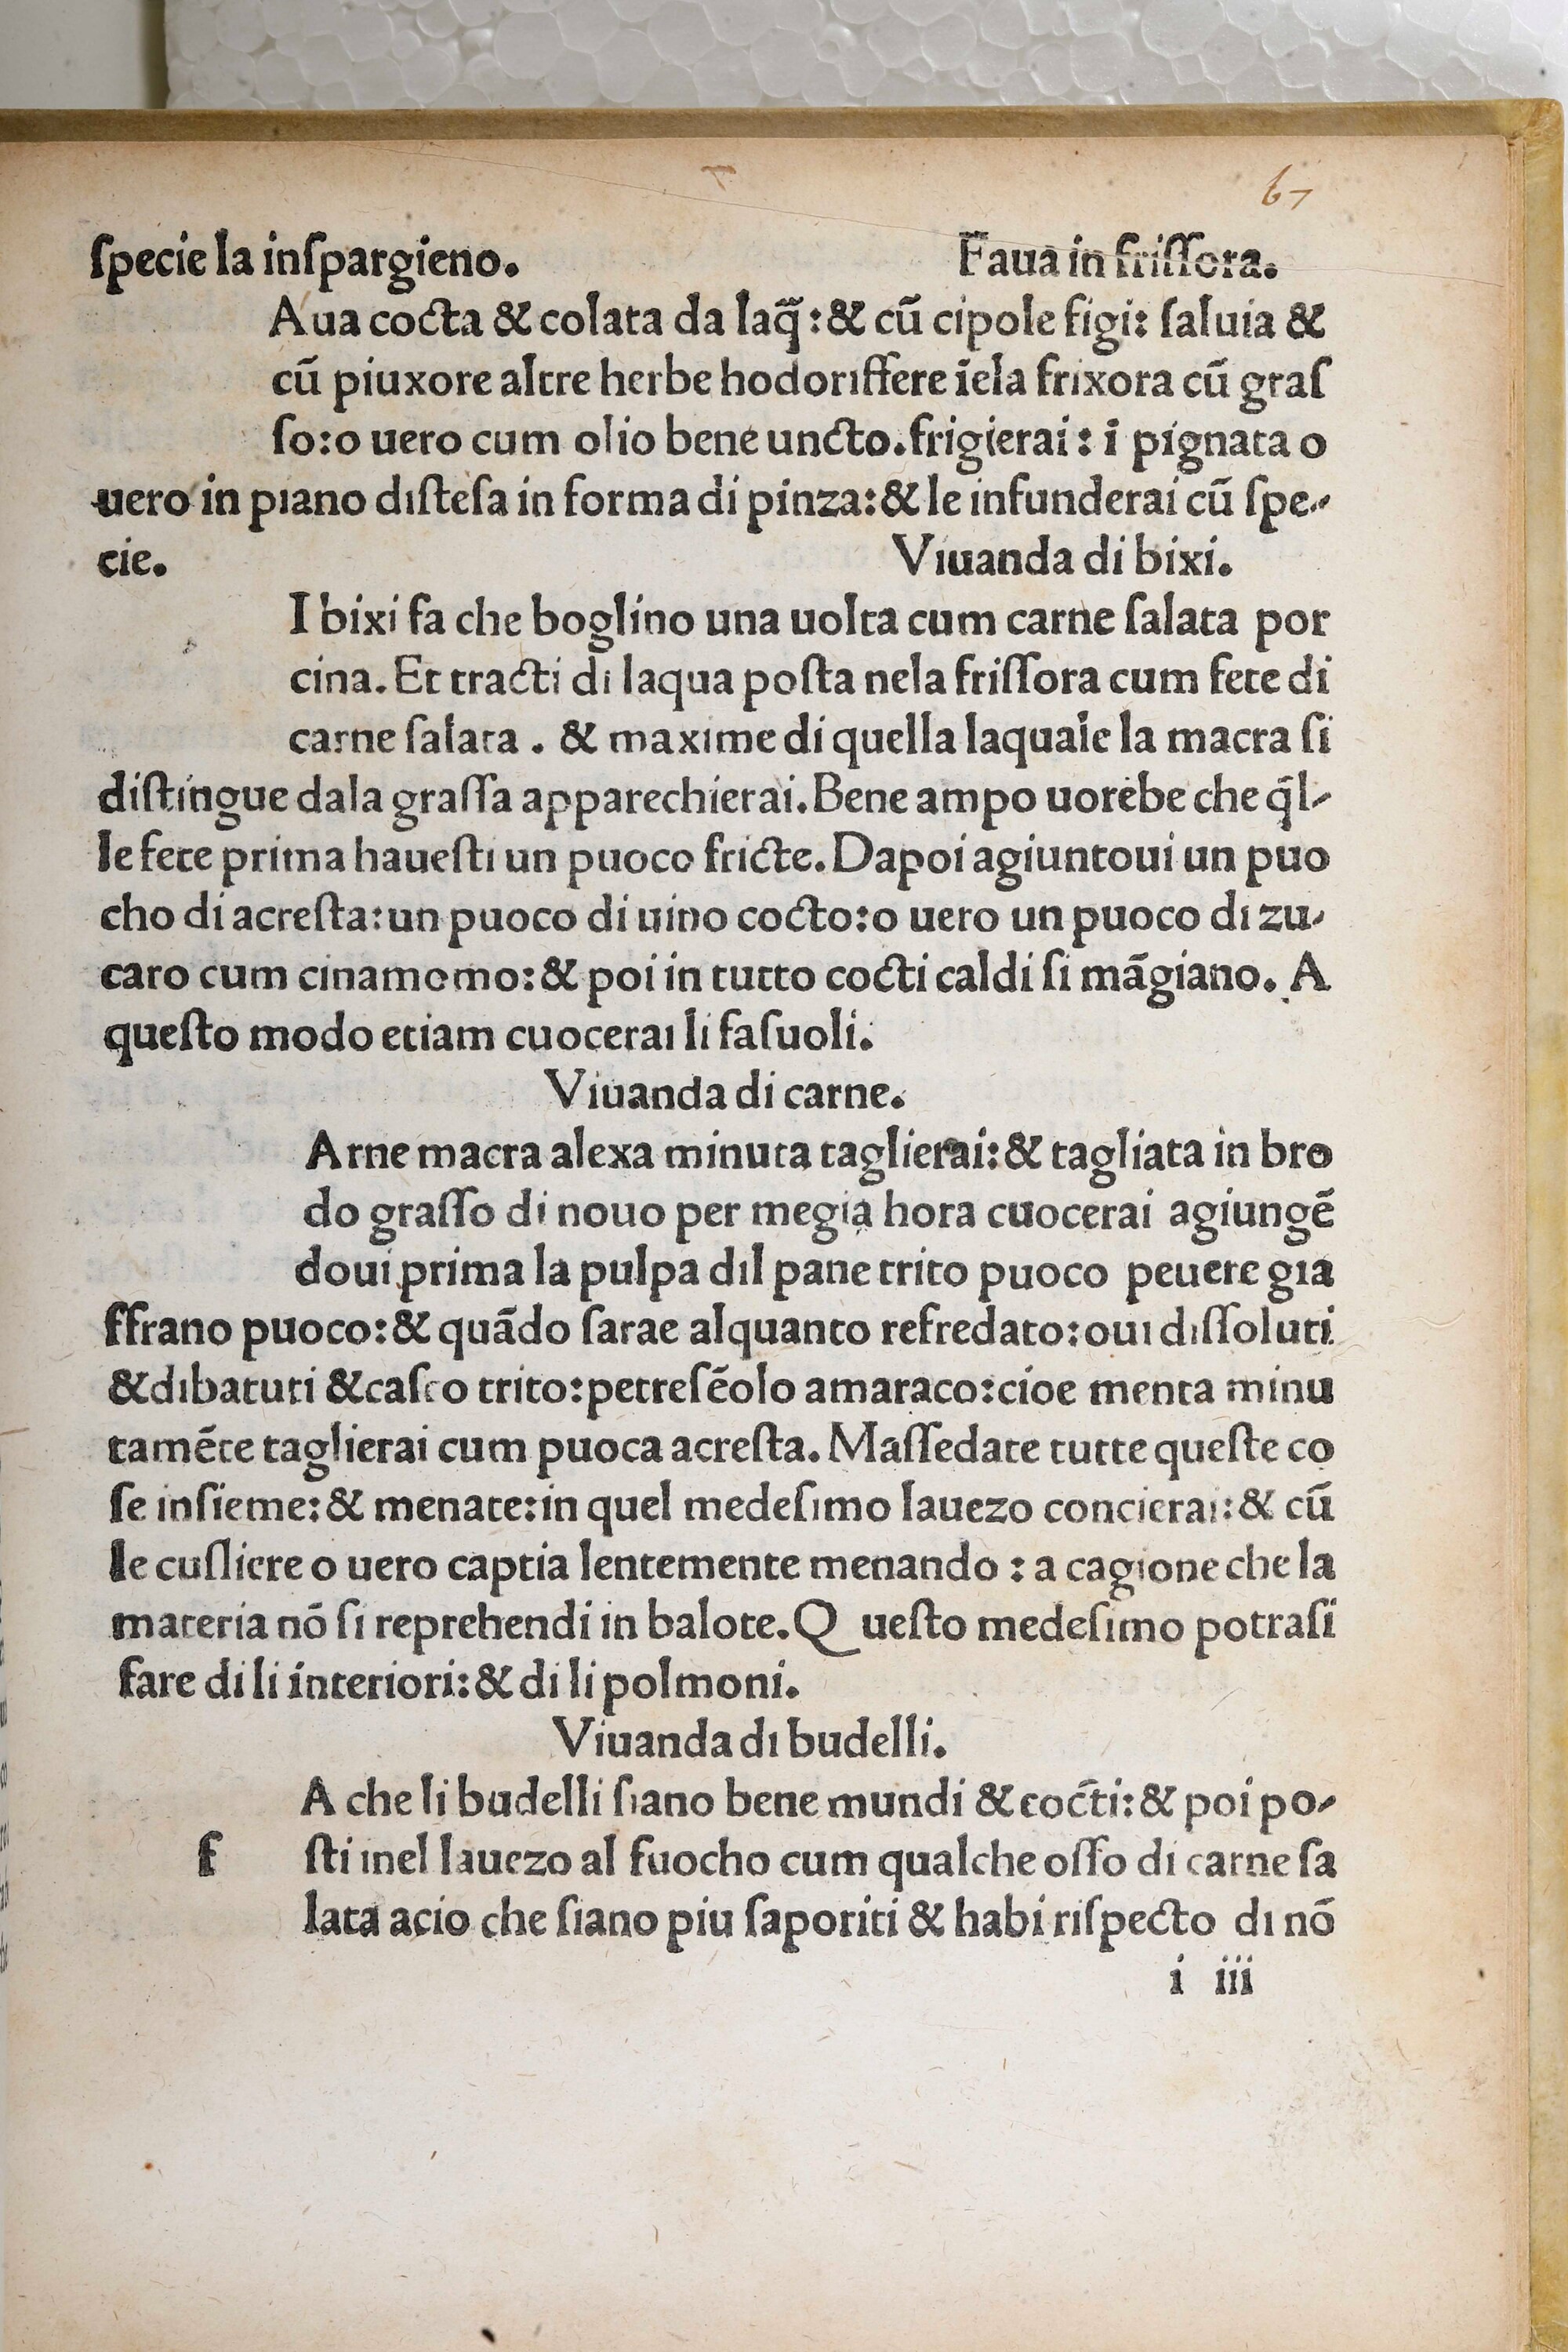 67
ſpecie la inſpargieno. Faua in friſſora.
Aua cocta & colata da laq̃: & cū cipole figi: ſaluia &
cū piuxore altre herbe hodoriffere īela frixora cū graſ
ſo: o uero cum olio bene uncto. frigierai: i pignata o
uero in piano diſteſa in forma di pinza: & le infunderai cū ſpe-
cie. Viuanda di bixi.
I bixi fa che boglino una uolta cum carne ſalata por
cina. Et tracti di laqua poſta nela friſſora cum fete di
carne ſalata. & maxime di quella laquale la macra ſi
diſtingue dala graſſa apparechierai. Bene ampo uorebe che q̄l-
le fete prima haueſti un puoco fricte. Dapoi agiuntoui un puo
cho di acreſta: un puoco di uino cocto: o uero un puoco di zu-
caro cum cinamomo: & poi in tutto cocti caldi ſi māgiano. A
queſto modo etiam cuocerai li faſuoli.
Viuanda di carne.
Arne macra alexa minuta taglierai: & tagliata in bro
do graſſo di nouo per megia hora cuocerai agiungē
doui prima la pulpa dil pane trito puoco peuere gia
ffrano puoco: & quādo ſarae alquanto refredato: oui diſſoluti
& dibatuti & caſeo trito: petreſēolo amaraco: cioe menta minu
tamēte taglierai cum puoca acreſta. Maſſedate tutte queſte co
ſe inſieme: & menate: in quel medeſimo lauezo concierai: & cū
le cuſliere o uero captia lentemente menando: a cagione che la
materia nō ſi reprehendi in balote. Queſto medeſimo potraſi
fare di li interiori: & di li polmoni.
Viuanda di budelli.
A che li budelli ſiano bene mundi & cocti: & poi po-
f ſti inel lauezo al fuocho cum qualche oſſo di carne ſa
lata acio che ſiano piu ſaporiti & habi riſpecto di nō
i iii